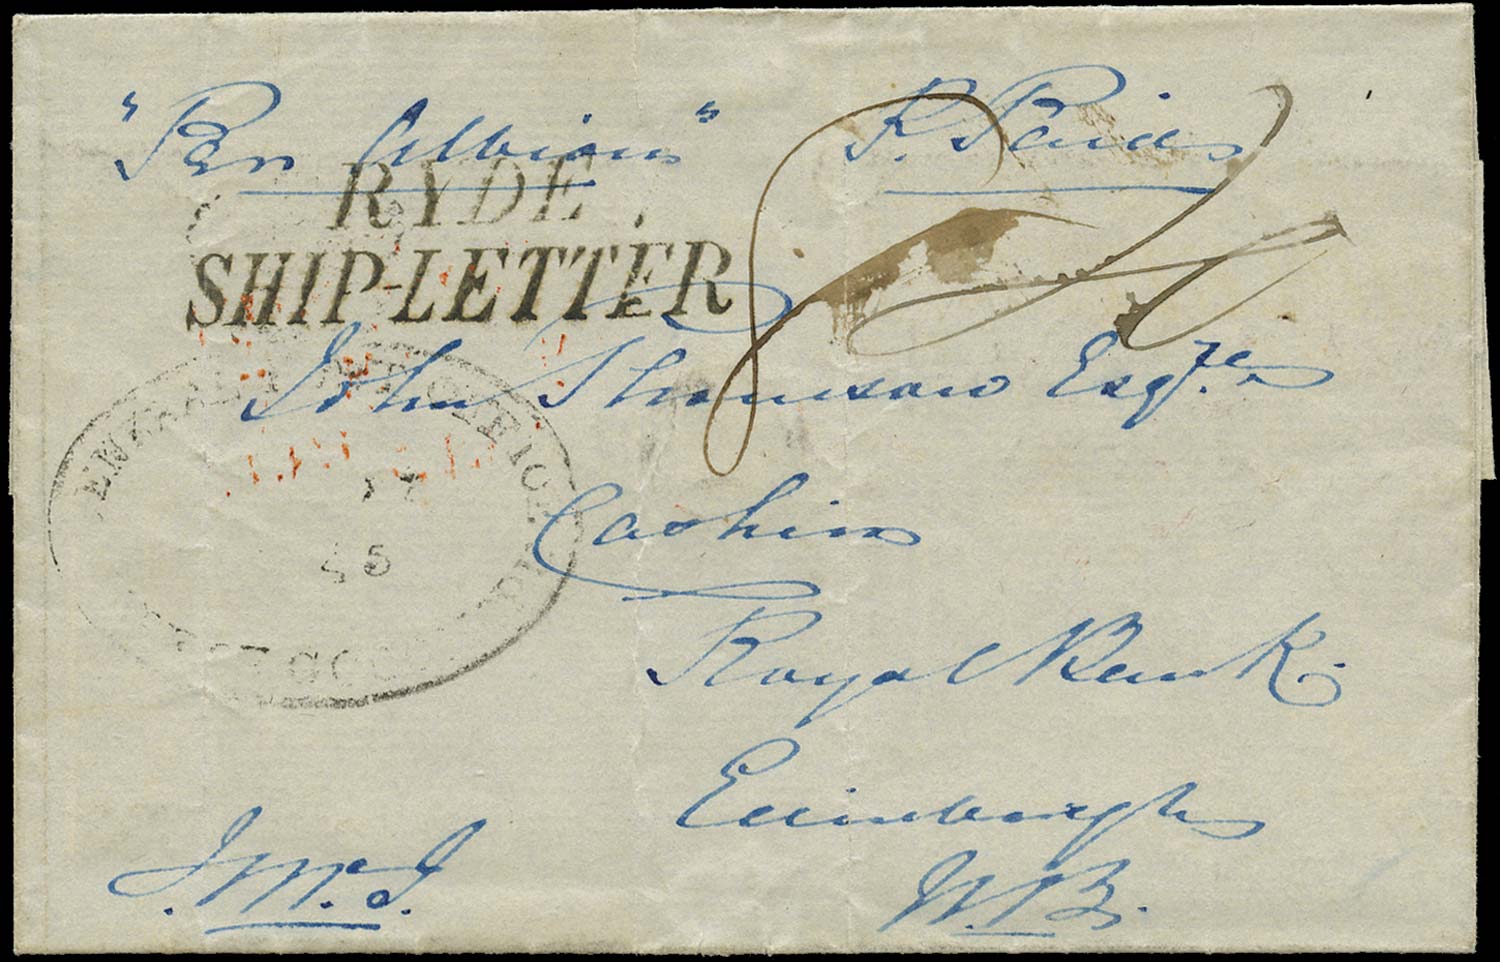 "Per Albion" P. Paid
RYDE
SHIP-LETTER
8
John Thomson Esqre
Cashier
Royal Bank
Edinburgh
N.B.
J. McJ.